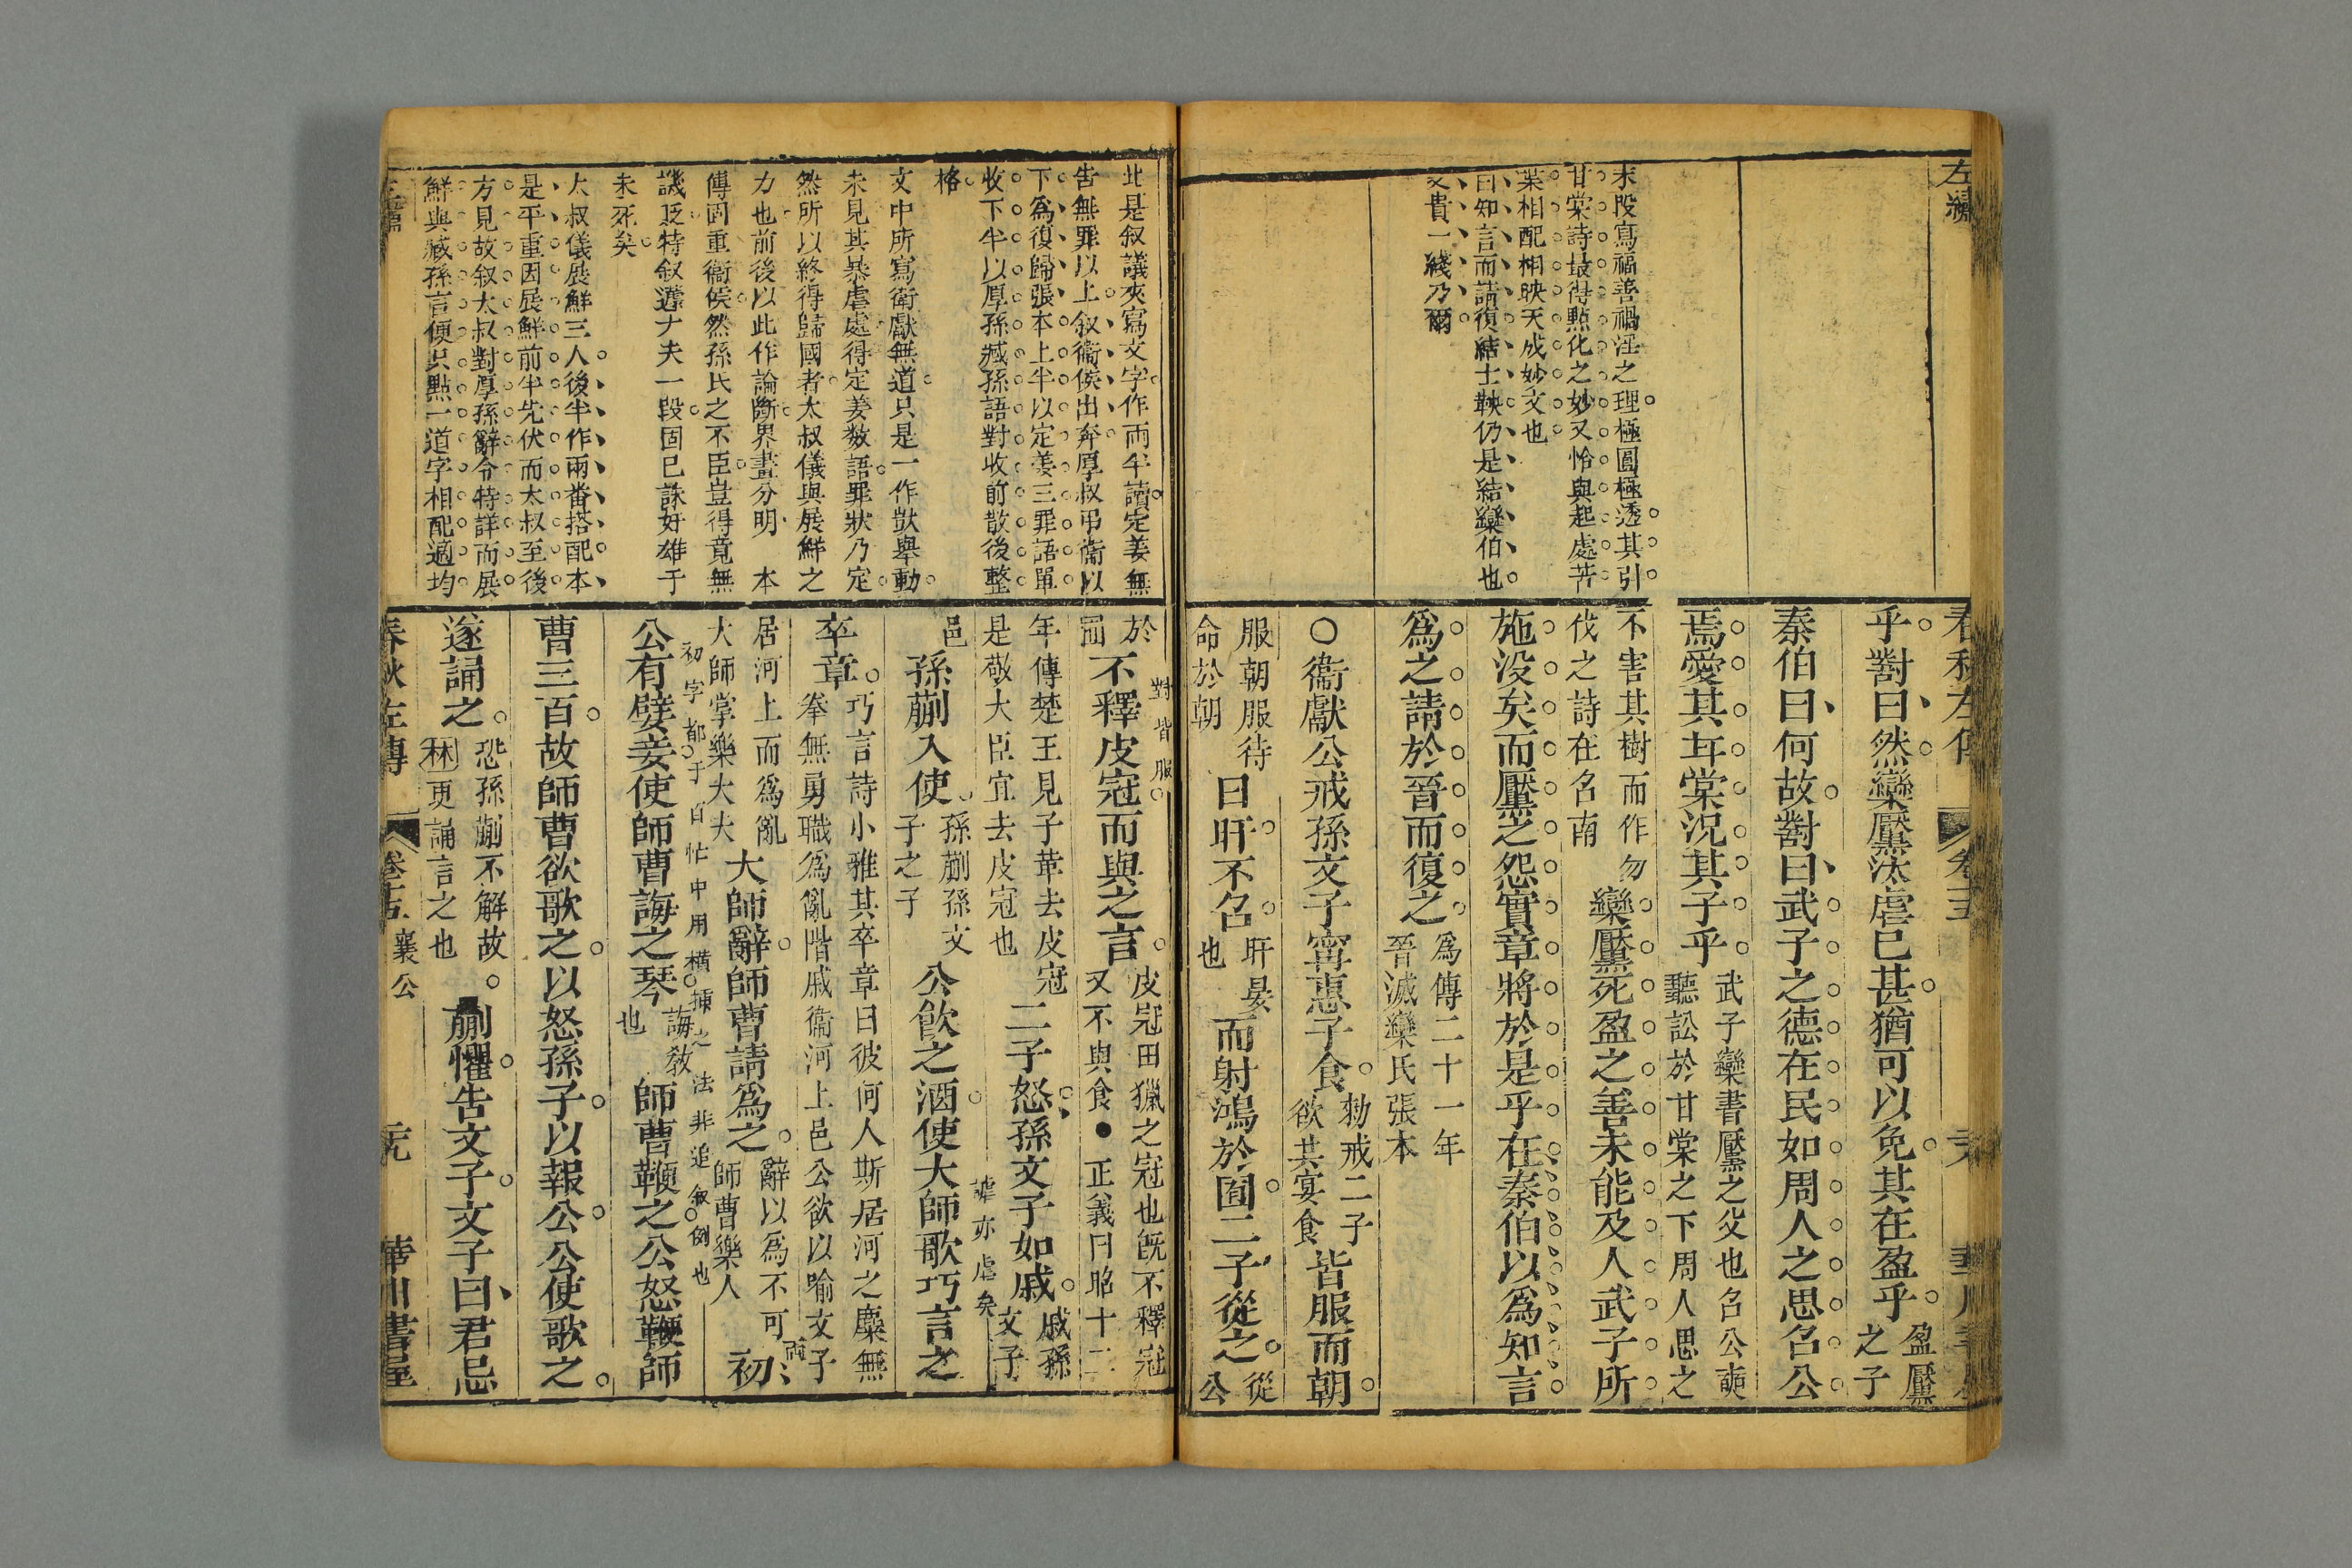 末段寫福善禍淫之理極圓極透其引
甘棠詩最得點化之妙又恰與起處苦
葉相配相映天成妙文也
曰知言而請復結士鞅仍是結欒伯也
文貴一綫乃爾
乎對曰然欒黶汰虐已甚猶可以免其在盈乎盈黶之子
秦伯曰何故對曰武子之德在民如周人之思召公
焉愛其甘棠況其子乎武子欒書黶之父也召公奭聽訟於甘棠之下周人思之
不害其樹而作勿伐之詩在召南欒黶死盈之善未能及人武子所
施没矣而黶之怨實章將於是乎在秦伯以為知言
爲之請於晉而復之爲傳二十一年晉滅欒氏張本
○衞獻公戒孫文子甯惠子食勑戒二子欲共宴食皆服而朝
服朝服待命於朝日旰不召旰晏也而射鴻於囿二子從之從公
此是叙議夾寫文字作兩半讀定姜無
告無罪以上叙衞侯出奔厚叔弔衞以
下爲復歸張本上半以定姜三罪語單
收下半以厚孫臧孫語對收前散後整
格
文中所寫衛獻無道只是一作獃舉動
未見其暴虐處得定姜數語罪狀乃定
然所以終得歸國者太叔儀與展鮮之
力也前後以此作論斷界畫分明 本
傳固重衞侯然孫氏之不臣豈得竟無
譏貶特叙蘧大夫一段固已誅奸雄于
未死矣
太叔儀展鮮三人後半作兩番搭配本
是平重因展鮮前半先伏而太叔至後
方見故叙太叔對厚孫辭令特詳而展
鮮與臧孫言便只點一道字相配適均
於囿不釋皮冠而與之言皮冠田獵之冠也既不釋冠又不與食●正義曰昭十二
對皆服
年傳楚王見子革去皮冠是敬大臣宜去皮冠也二子怒孫文子如戚戚孫文子
邑孫蒯入使孫蒯孫文子之子公飲之酒使大師歌巧言之
謔亦虐矣
卒章巧言詩小雅其卒章曰彼何人斯居河之麋無拳無勇職爲亂階戚衞河上邑公欲以喻文子
居河上而爲亂大師掌樂大夫大師辭師曹請爲之辭以爲不可師曹樂人初
初字都于百忙中用橫插之法非追叙倒也
公有嬖妾使師曹誨之琴誨教也師曹鞭之公怒鞭師
曹三百故師曹欲歌之以怒孫子以報公公使歌之
遂誦之恐孫蒯不解故林更誦言之也蒯懼告文子文子曰君忌
春秋左傳 卷十五 襄公 華川書屋